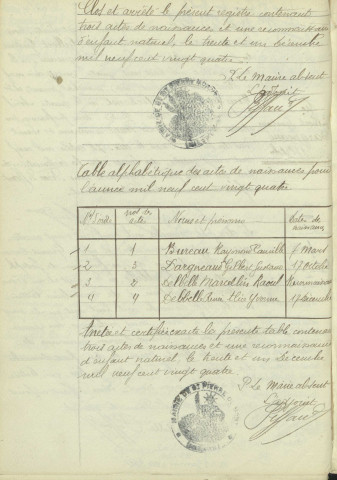 Clos et arrêté le présent registre contenant
trois actes de naissances et une reconnaissance
d'enfant naturel, le trente et un Décembre
mil neuf cent vingt quatre
P. Le Maire absent
L'adjoint
Table alphabétique des actes de naissances pour
l'année mil neuf cent vingt quatre
Nos d'ordre Nos des actes Noms et prénoms Dates des naissances
1 1 Bureau Raymond Camille 6 Mars
2 3 Gilbert 17 Octobre
3 2 Marcellin Raoul
4 4 Yvonne 17 Décembre
Arrêté et certifié exacte la présente table contenant
trois actes de naissances et une reconnaissance
d'enfant naturel le trente et un Décembre
mil neuf cent vingt quatre
P. Le Maire absent
L'adjoint